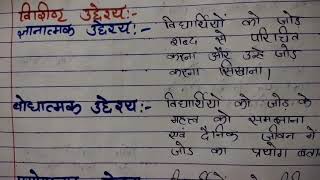 विशिष्ट उद्देश्य:-
ज्ञानात्मक उद्देश्य:- विद्यार्थियों को जोड़
शब्द से परिचित
करना और उन्हें जोड़
करना सिखाना।
बोधात्मक उद्देश्य:- विद्यार्थियो को जोड़ के
महत्व को समझाना
एवं दैनिक जीवन में
जोड़ का प्रयोग